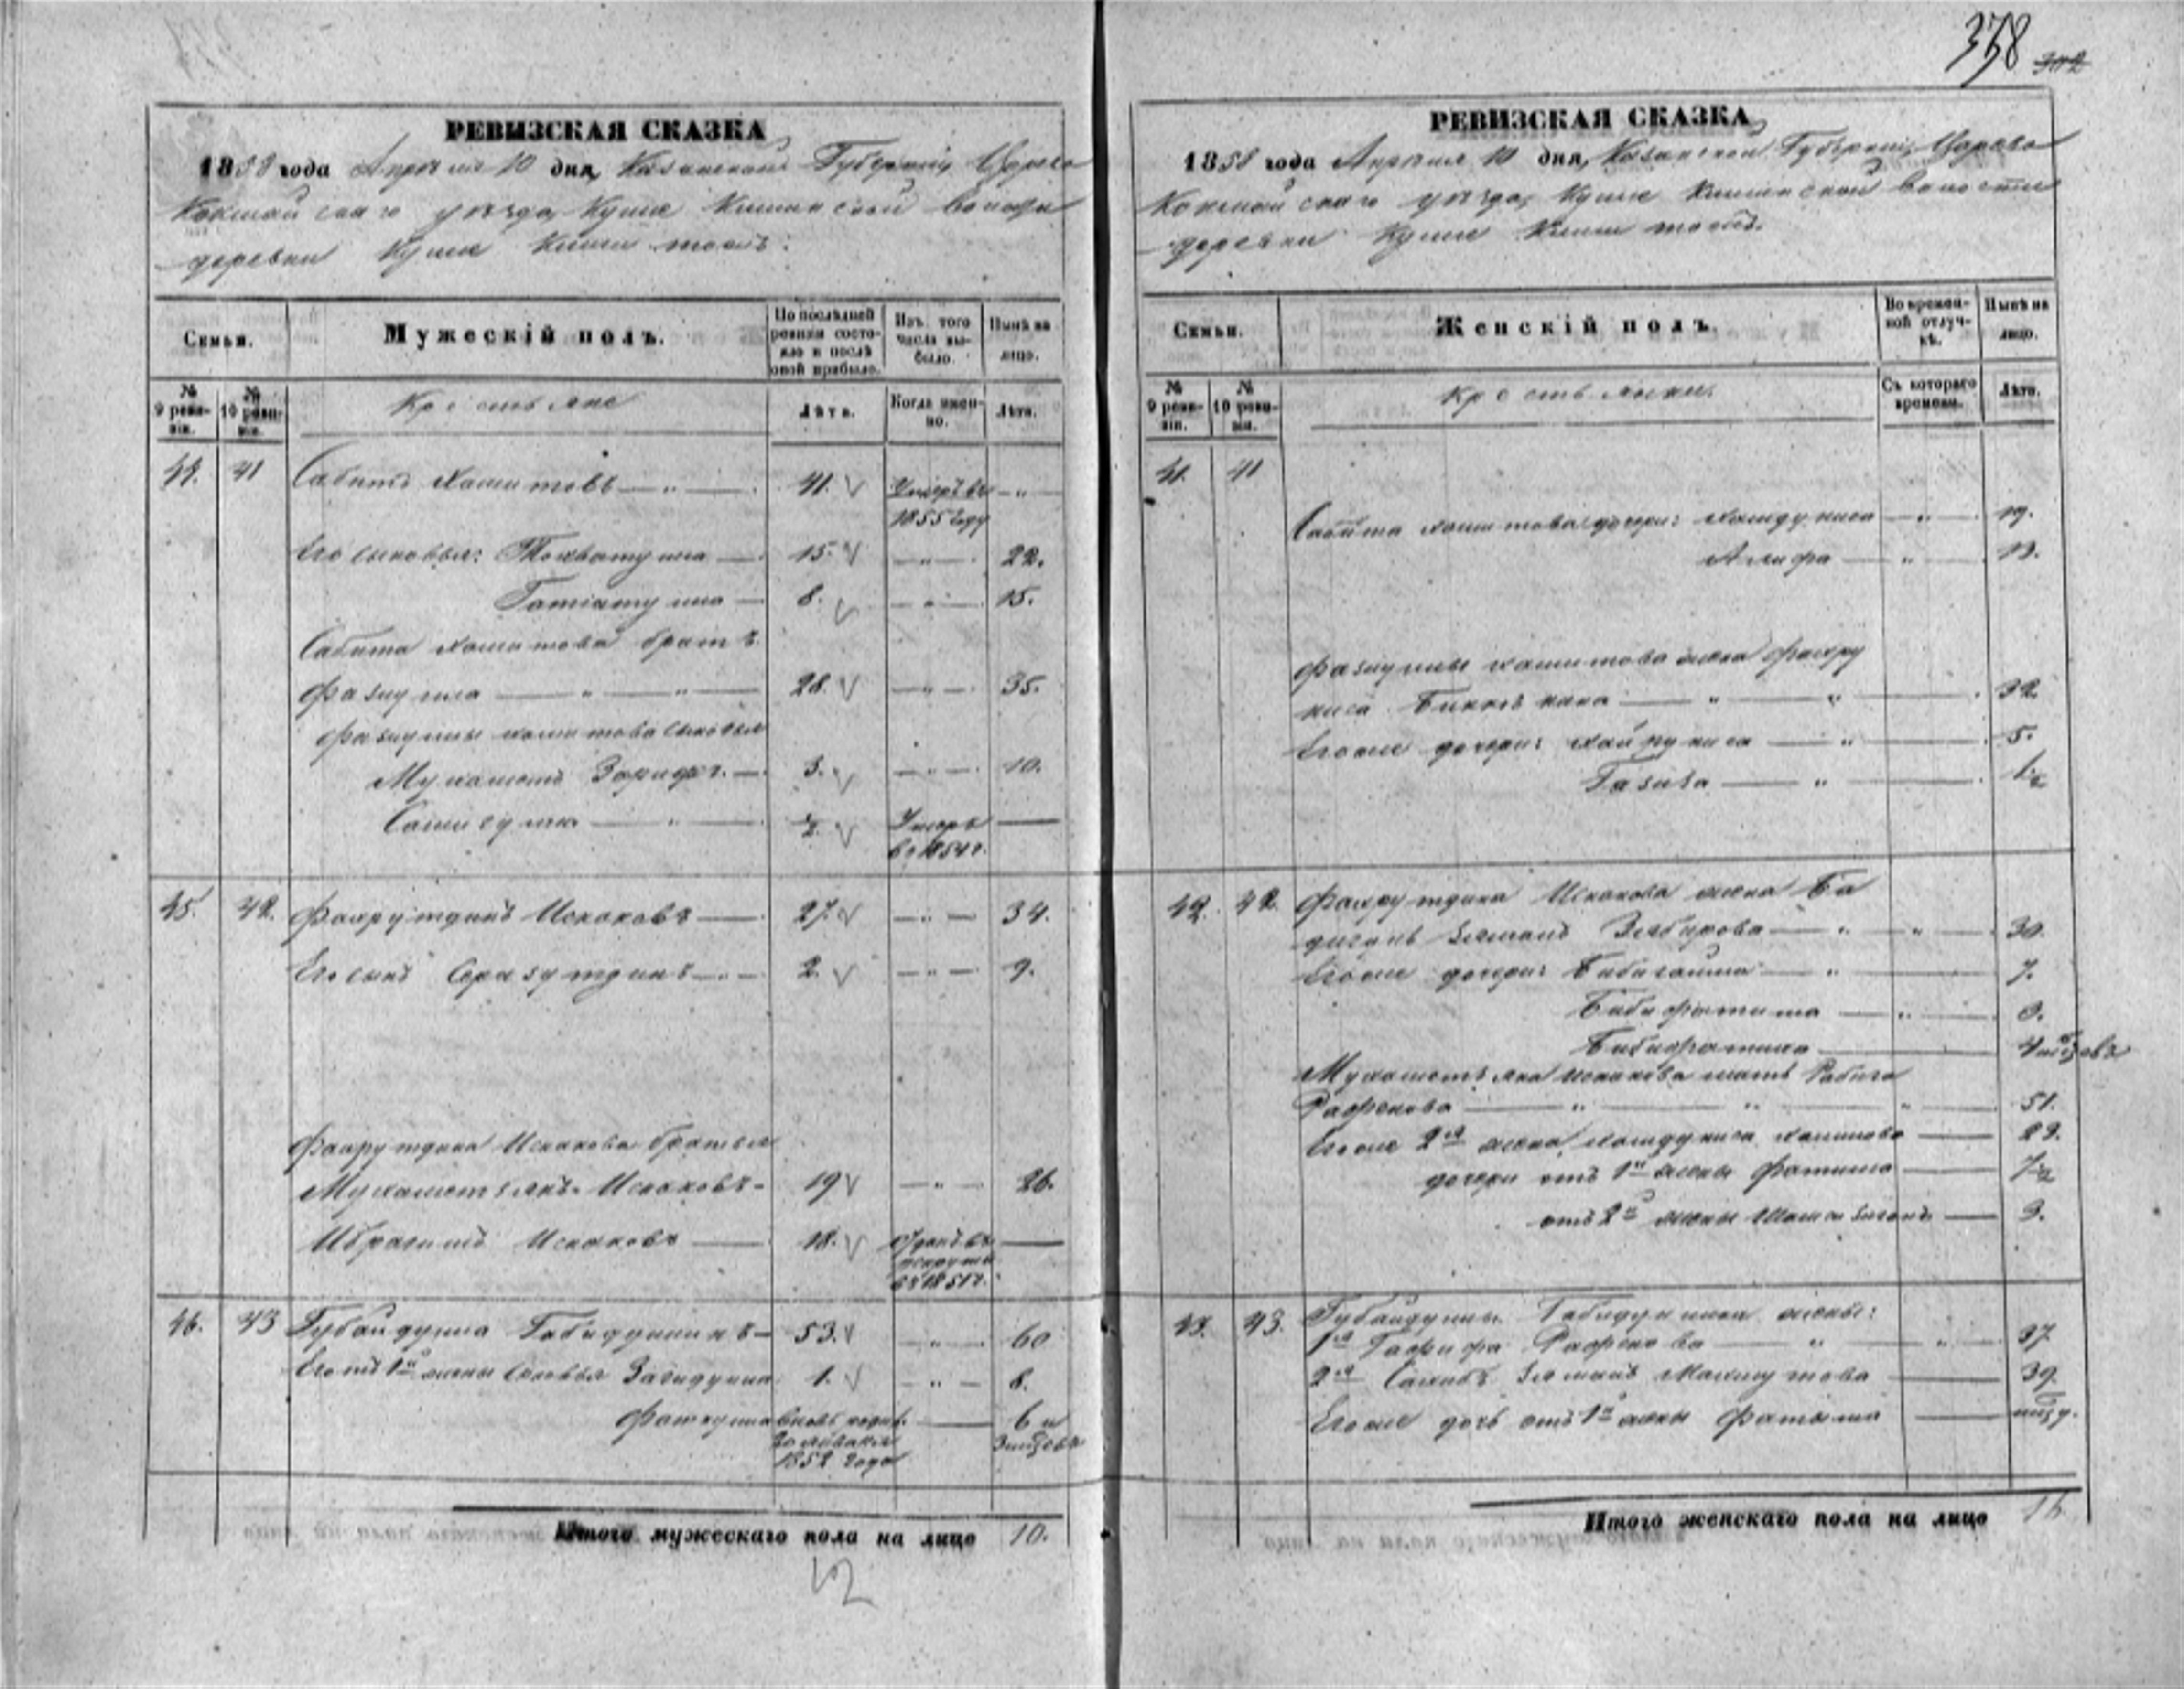 358
302
РЕВИЗСКАЯ СКАЗКА
1858 года Апреля 10 дня, Казанской Губернии, Царево
Кокшайскаго уезда, Куше Кишинской волости
деревни Куше Киши
Семьи.
Мужескій полъ.
По послѣдней ревизіи состояло и послѣ оной прибыло.
Изъ того числа выбыло.
Нынѣ на лицо.
№ 9 ревизіи.
№ 10 ревизіи.
Крестьяне
Лѣта.
Когда именно.
Лѣта.
44. 41 Сабитъ Хамитовъ — 41. Умеръ въ 1855 году
Его сыновья: Тохватулла — 15. — 22.
Гатіатулла — 8. — 15.
Сабита Хамитова братъ
Фазлулла — 28. — 35.
Фазлуллы Хамитова сыновья
Мухаметъ Зарифъ — 3. — 10.
— ½ Умеръ въ 1854 г. —
45. 42. Фахрутдинъ Исхаковъ — 27. — 34.
Его сынъ Серазутдинъ — 2. — 9.
Фахрутдина Исхакова братья
Мухаметзянъ Исхаковъ — 19 — 26.
Ибрагимъ Исхаковъ — 18. Отданъ въ рекруты въ 1851 г. —
46. 43 Губайдулла Габидуллинъ — 53. — 60
Его отъ 1й жены сыновья Загидулла 1. — 8.
Фаткулла вновь рожд. 1852 года — 6 и 3 месяцевъ
Итого мужескаго пола на лицо 10.
РЕВИЗСКАЯ СКАЗКА
1858 года Апреля 10 дня, Казанской Губерніи, Царево
Кокшайскаго уезда, Куше Кишинской волости
деревни Куше Киши
Семьи.
Женскій полъ.
Во временной отлучкѣ.
Нынѣ на лицо.
№ 9 ревизіи.
№ 10 ревизіи.
Крестьянки.
Съ котораго времени.
Лѣта.
41. 41
Сабита Хамитова дочери: Хамдуниса — 19.
Алифа — 13.
Фазлуллы Хамитова жена Фахру
ниса — 32
Его же дочери: Хайруниса — 5.
Газиза — 1½
42. 42. Фахрутдина Исхакова жена Ба
Зямалъ Зябирова — 30.
Его же дочери: — 7.
Бибифатима — 3.
— 4 месяцевъ
Мухаметзяна Исхакова мать Рабига
Рафекова — 51.
Его же 2я жена Хамдуниса — 23.
дочери отъ 1й жены Фатима — 7½
отъ 2й жены — 3.
43. 43. Губайдуллы Габидуллина жены:
1я Гафифа Рафекова — 37
2я Зямалъ — 39.
Его же дочь отъ 1й жены Фатыма —
Итого женскаго пола на лицо 16